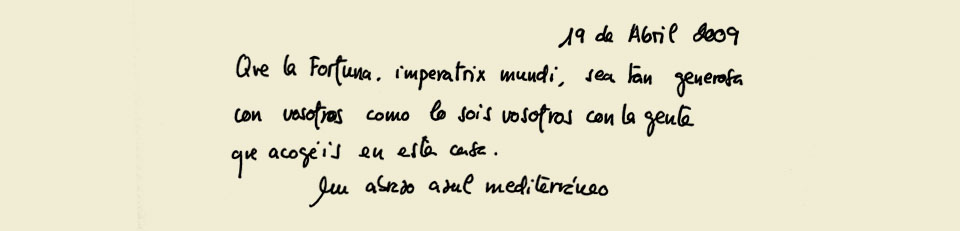 19 de Abril 2009
Que la Fortuna, imperatrix mundi, sea tan generosa
con vosotros como lo sois vosotros con la gente
que acogéis en esta casa.
Un abrazo azul mediterráneo